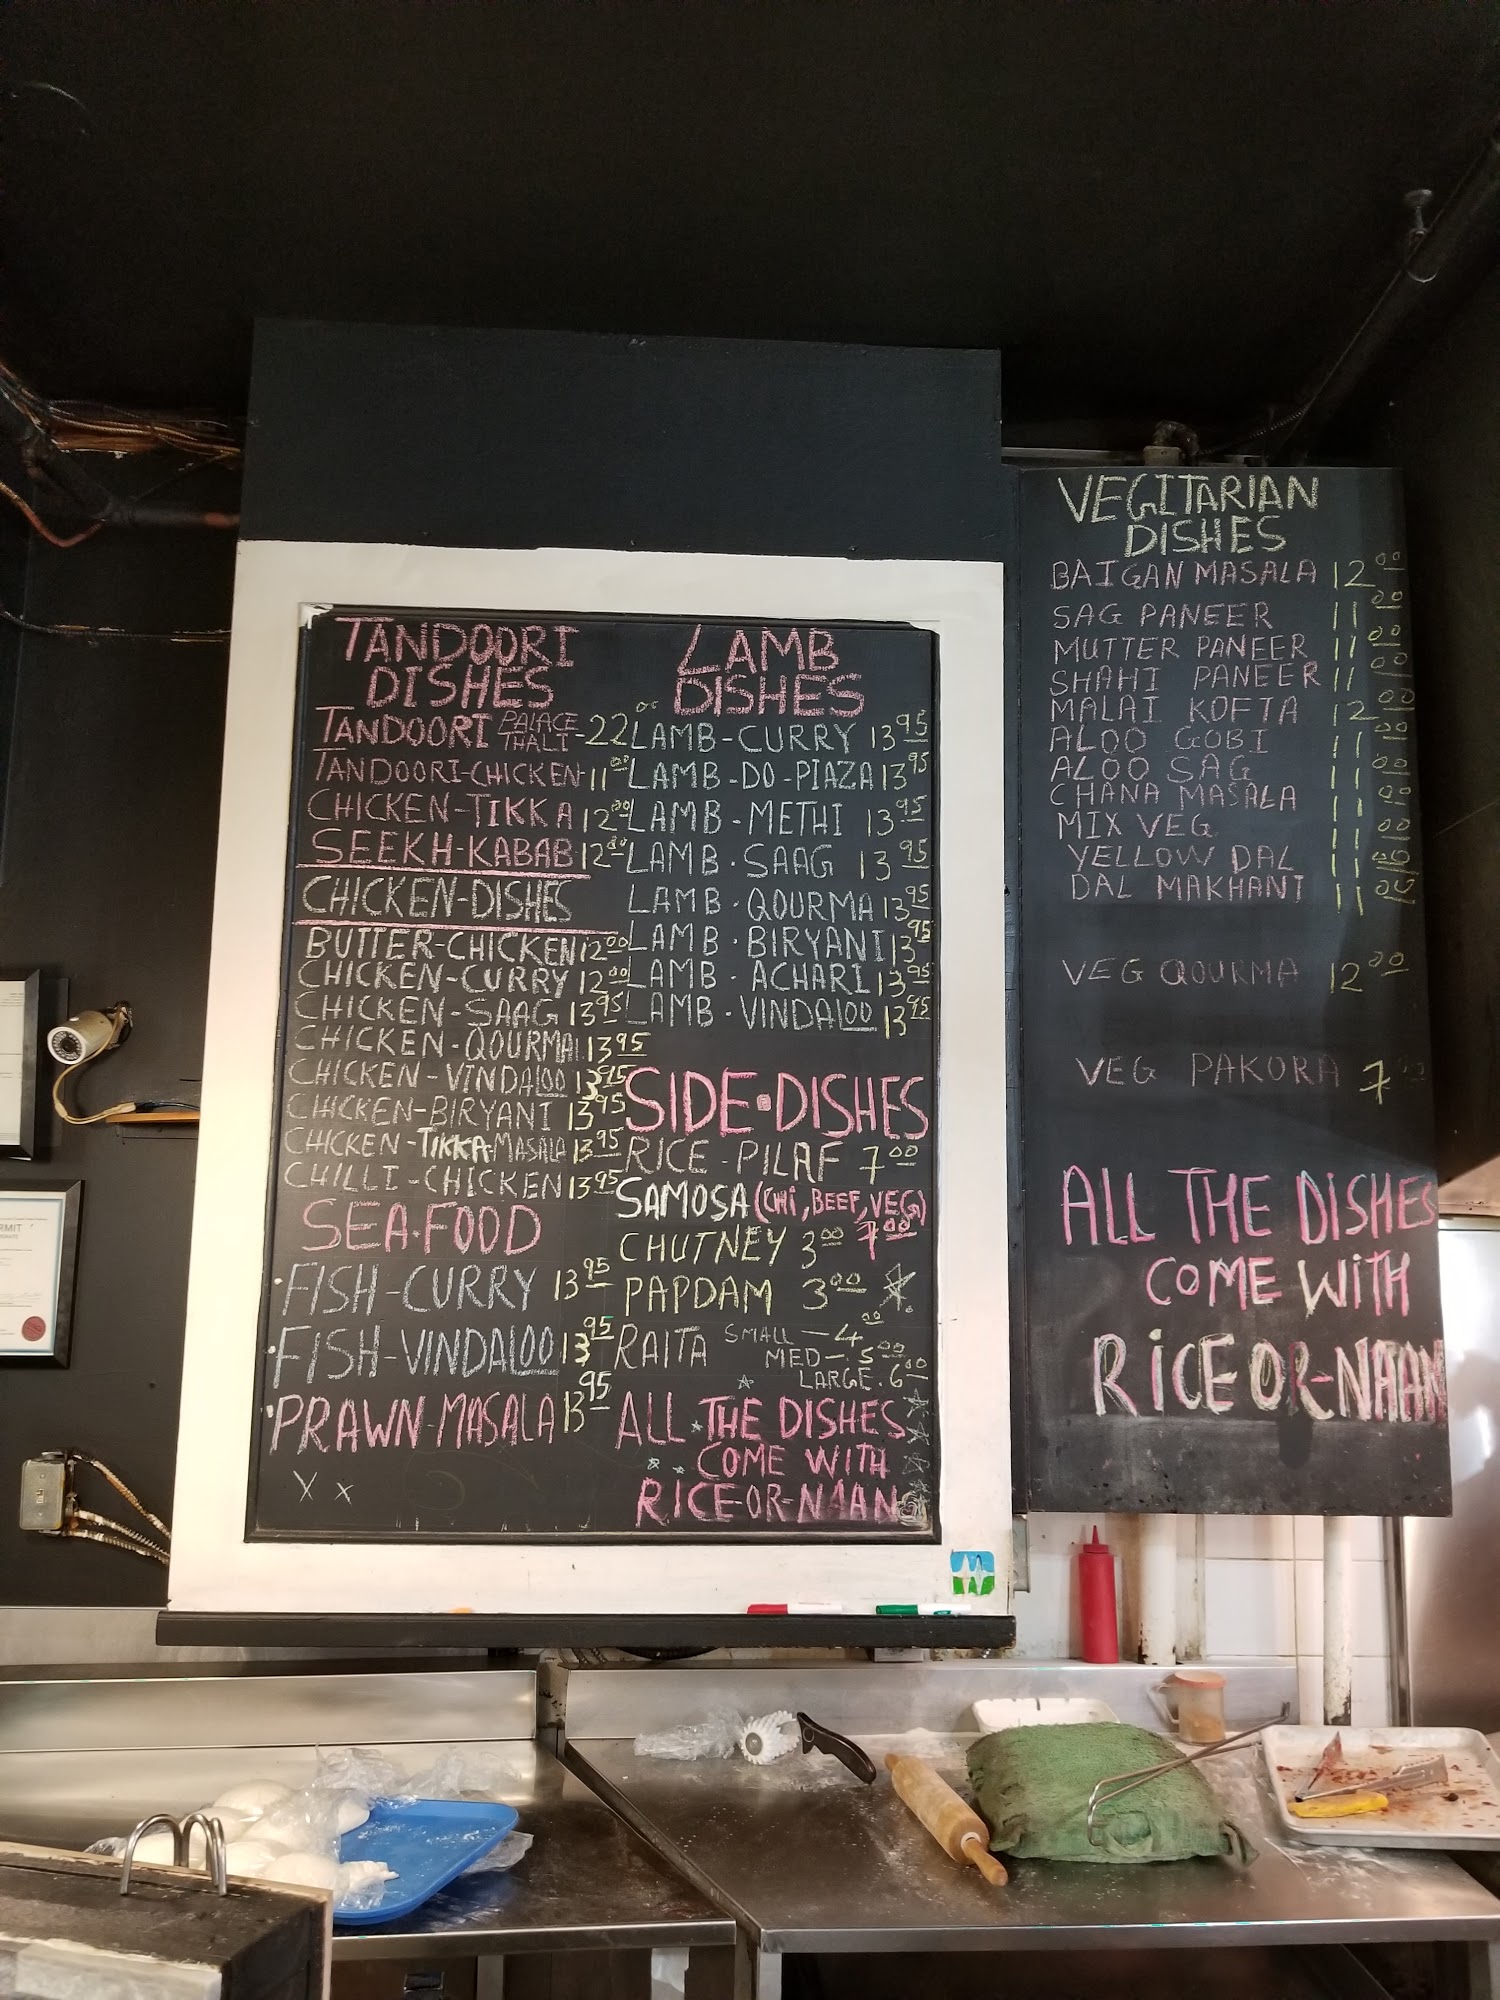 TANDOORI
DISHES
TANDOORI PALACE THALI-22.00
TANDOORI-CHICKEN-11.00
CHICKEN-TIKKA 12.00
SEEKH-KABAB 12.00
CHICKEN-DISHES
BUTTER-CHICKEN 12.00
CHICKEN-CURRY 12.00
CHICKEN-SAAG 13.95
CHICKEN-QOURMA 13.95
CHICKEN-VINDALOO 13.95
CHICKEN-BIRYANI 13.95
CHICKEN-TIKKA-MASALA 13.95
CHILLI-CHICKEN 13.95
SEA-FOOD
FISH-CURRY 13.95
FISH-VINDALOO 13.95
PRAWN-MASALA 13.95
X x
LAMB
DISHES
LAMB-CURRY 13.95
LAMB-DO-PIAZA 13.95
LAMB-METHI 13.95
LAMB-SAAG 13.95
LAMB-QOURMA 13.95
LAMB-BIRYANI 13.95
LAMB-ACHARI 13.95
LAMB-VINDALOO 13.95
SIDE-DISHES
RICE-PILAF 7.00
SAMOSA (CHI, BEEF, VEG)
7.00
CHUTNEY 3.00
PAPDAM 3.00
RAITA SMALL-4.00
MED-5.00
LARGE.6.00
ALL THE DISHES
COME WITH
RICE-OR-NAAN
VEGITARIAN
DISHES
BAIGAN MASALA 12.00
SAG PANEER 11.00
MUTTER PANEER 11.00
SHAHI PANEER 11.00
MALAI KOFTA 12.00
ALOO GOBI 11.00
ALOO SAG 11.00
CHANA MASALA 11.00
MIX VEG 11.00
YELLOW DAL 11.00
DAL MAKHANI 11.00
VEG QOURMA 12.00
VEG PAKORA 7.00
ALL THE DISHES
COME WITH
RICE OR-NAAN